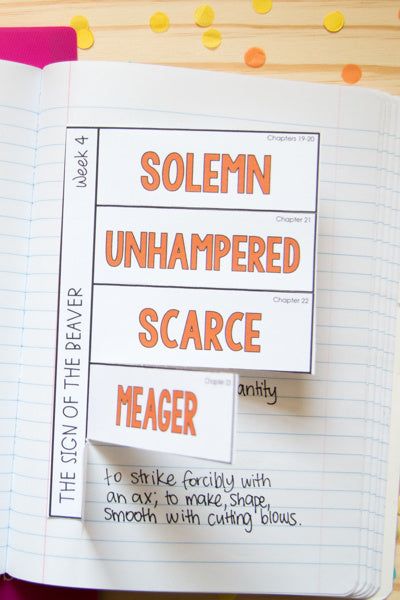 Week 4
THE SIGN OF THE BEAVER
Chapters 19-20
SOLEMN
Chapter 21
UNHAMPERED
Chapter 22
SCARCE
Chapter 23
MEAGER
antity
to strike forcibly with
an ax; to make, shape,
smooth with cutting blows.